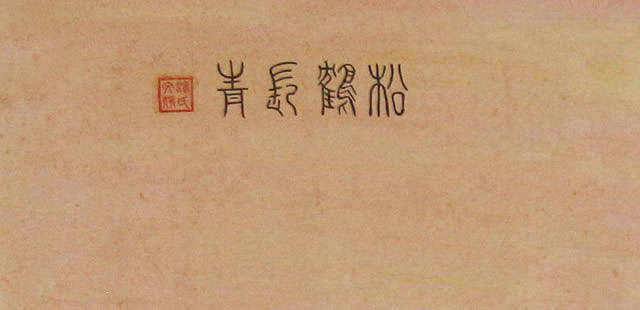 松鶴長青